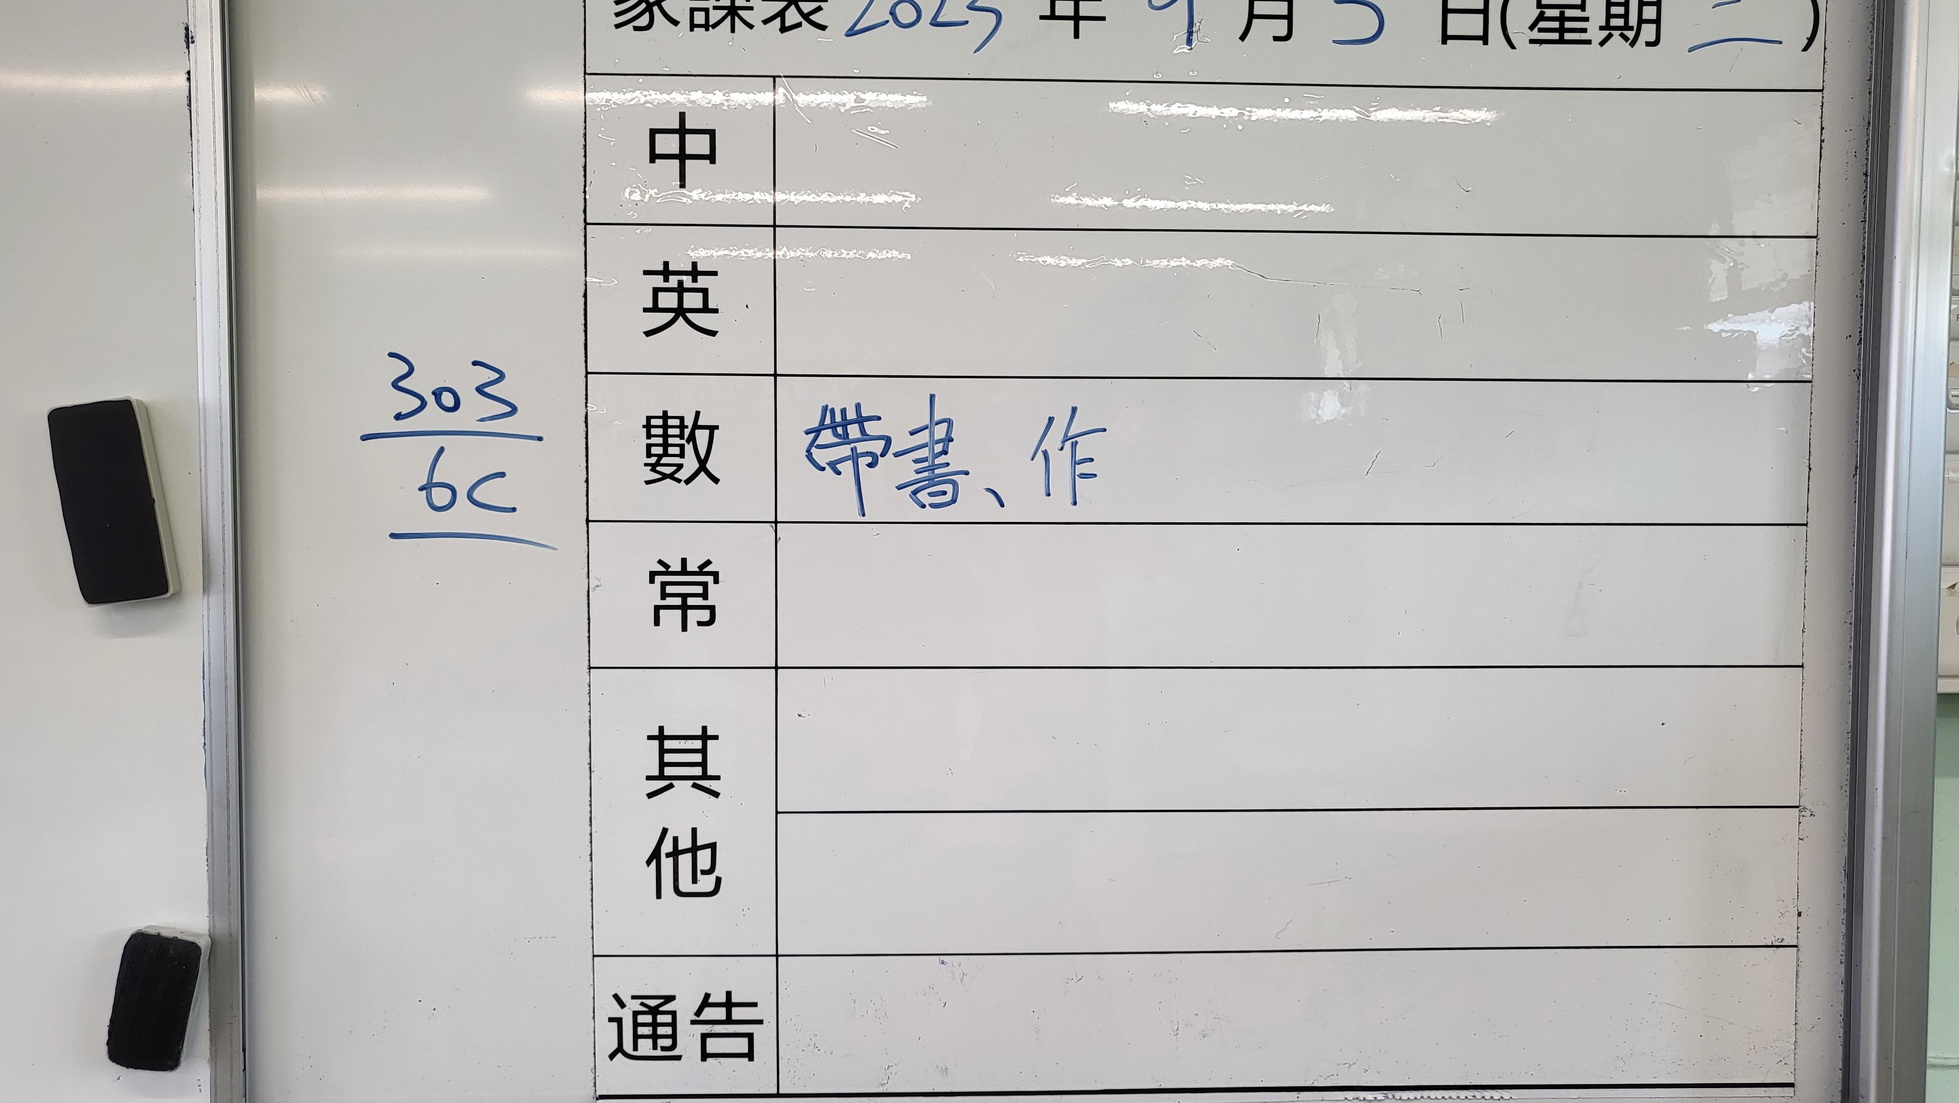 家課表 年 9 月 日(星期 )
中
英
303
6C
數 帶書、作
常
其他
通告